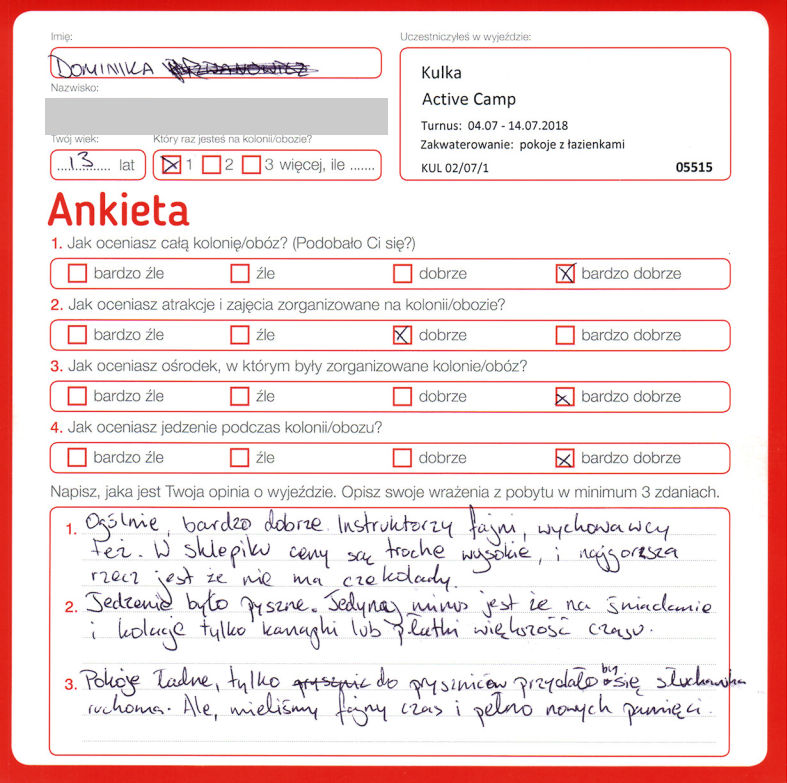 Imię:
DOMINIKA
Nazwisko:
Twój wiek:
13 lat
Który raz jesteś na kolonii/obozie?
1 2 3 więcej, ile .......
Uczestniczyłeś w wyjeździe:
Kulka
Active Camp
Turnus: 04.07 - 14.07.2018
Zakwaterowanie: pokoje z łazienkami
KUL 02/07/1 05515
Ankieta
1. Jak oceniasz całą kolonię/obóz? (Podobało Ci się?)
bardzo źle źle dobrze bardzo dobrze
2. Jak oceniasz atrakcje i zajęcia zorganizowane na kolonii/obozie?
bardzo źle źle dobrze bardzo dobrze
3. Jak oceniasz ośrodek, w którym były zorganizowane kolonie/obóz?
bardzo źle źle dobrze bardzo dobrze
4. Jak oceniasz jedzenie podczas kolonii/obozu?
bardzo źle źle dobrze bardzo dobrze
Napisz, jaka jest Twoja opinia o wyjeździe. Opisz swoje wrażenia z pobytu w minimum 3 zdaniach.
1. Ogólnie, bardzo dobrze. Instruktorzy fajni, wychowawcy
też. W sklepiku ceny są troche wysokie, i najgorsza
rzecz jest że nie ma czekolady.
2. Jedzenie było pyszne. Jedynay minus jest że na śniadanie
i kolacje tylko kanapki lub płatki większość czasu.
3. Pokoje ładne, tylko do pryszniców przydało by się słuchawka
ruchoma. Ale, mieliśmy fajny czas i pełno nowych pamięci.